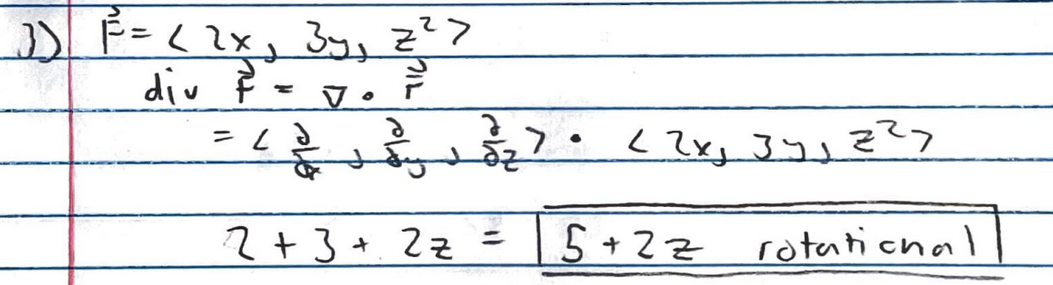 3) F⃗ = < 2x, 3y, z² >
div F⃗ = ∇ • F⃗
= < ∂/∂x , ∂/∂y , ∂/∂z > • < 2x, 3y, z² >
2 + 3 + 2z = 5 + 2z rotational